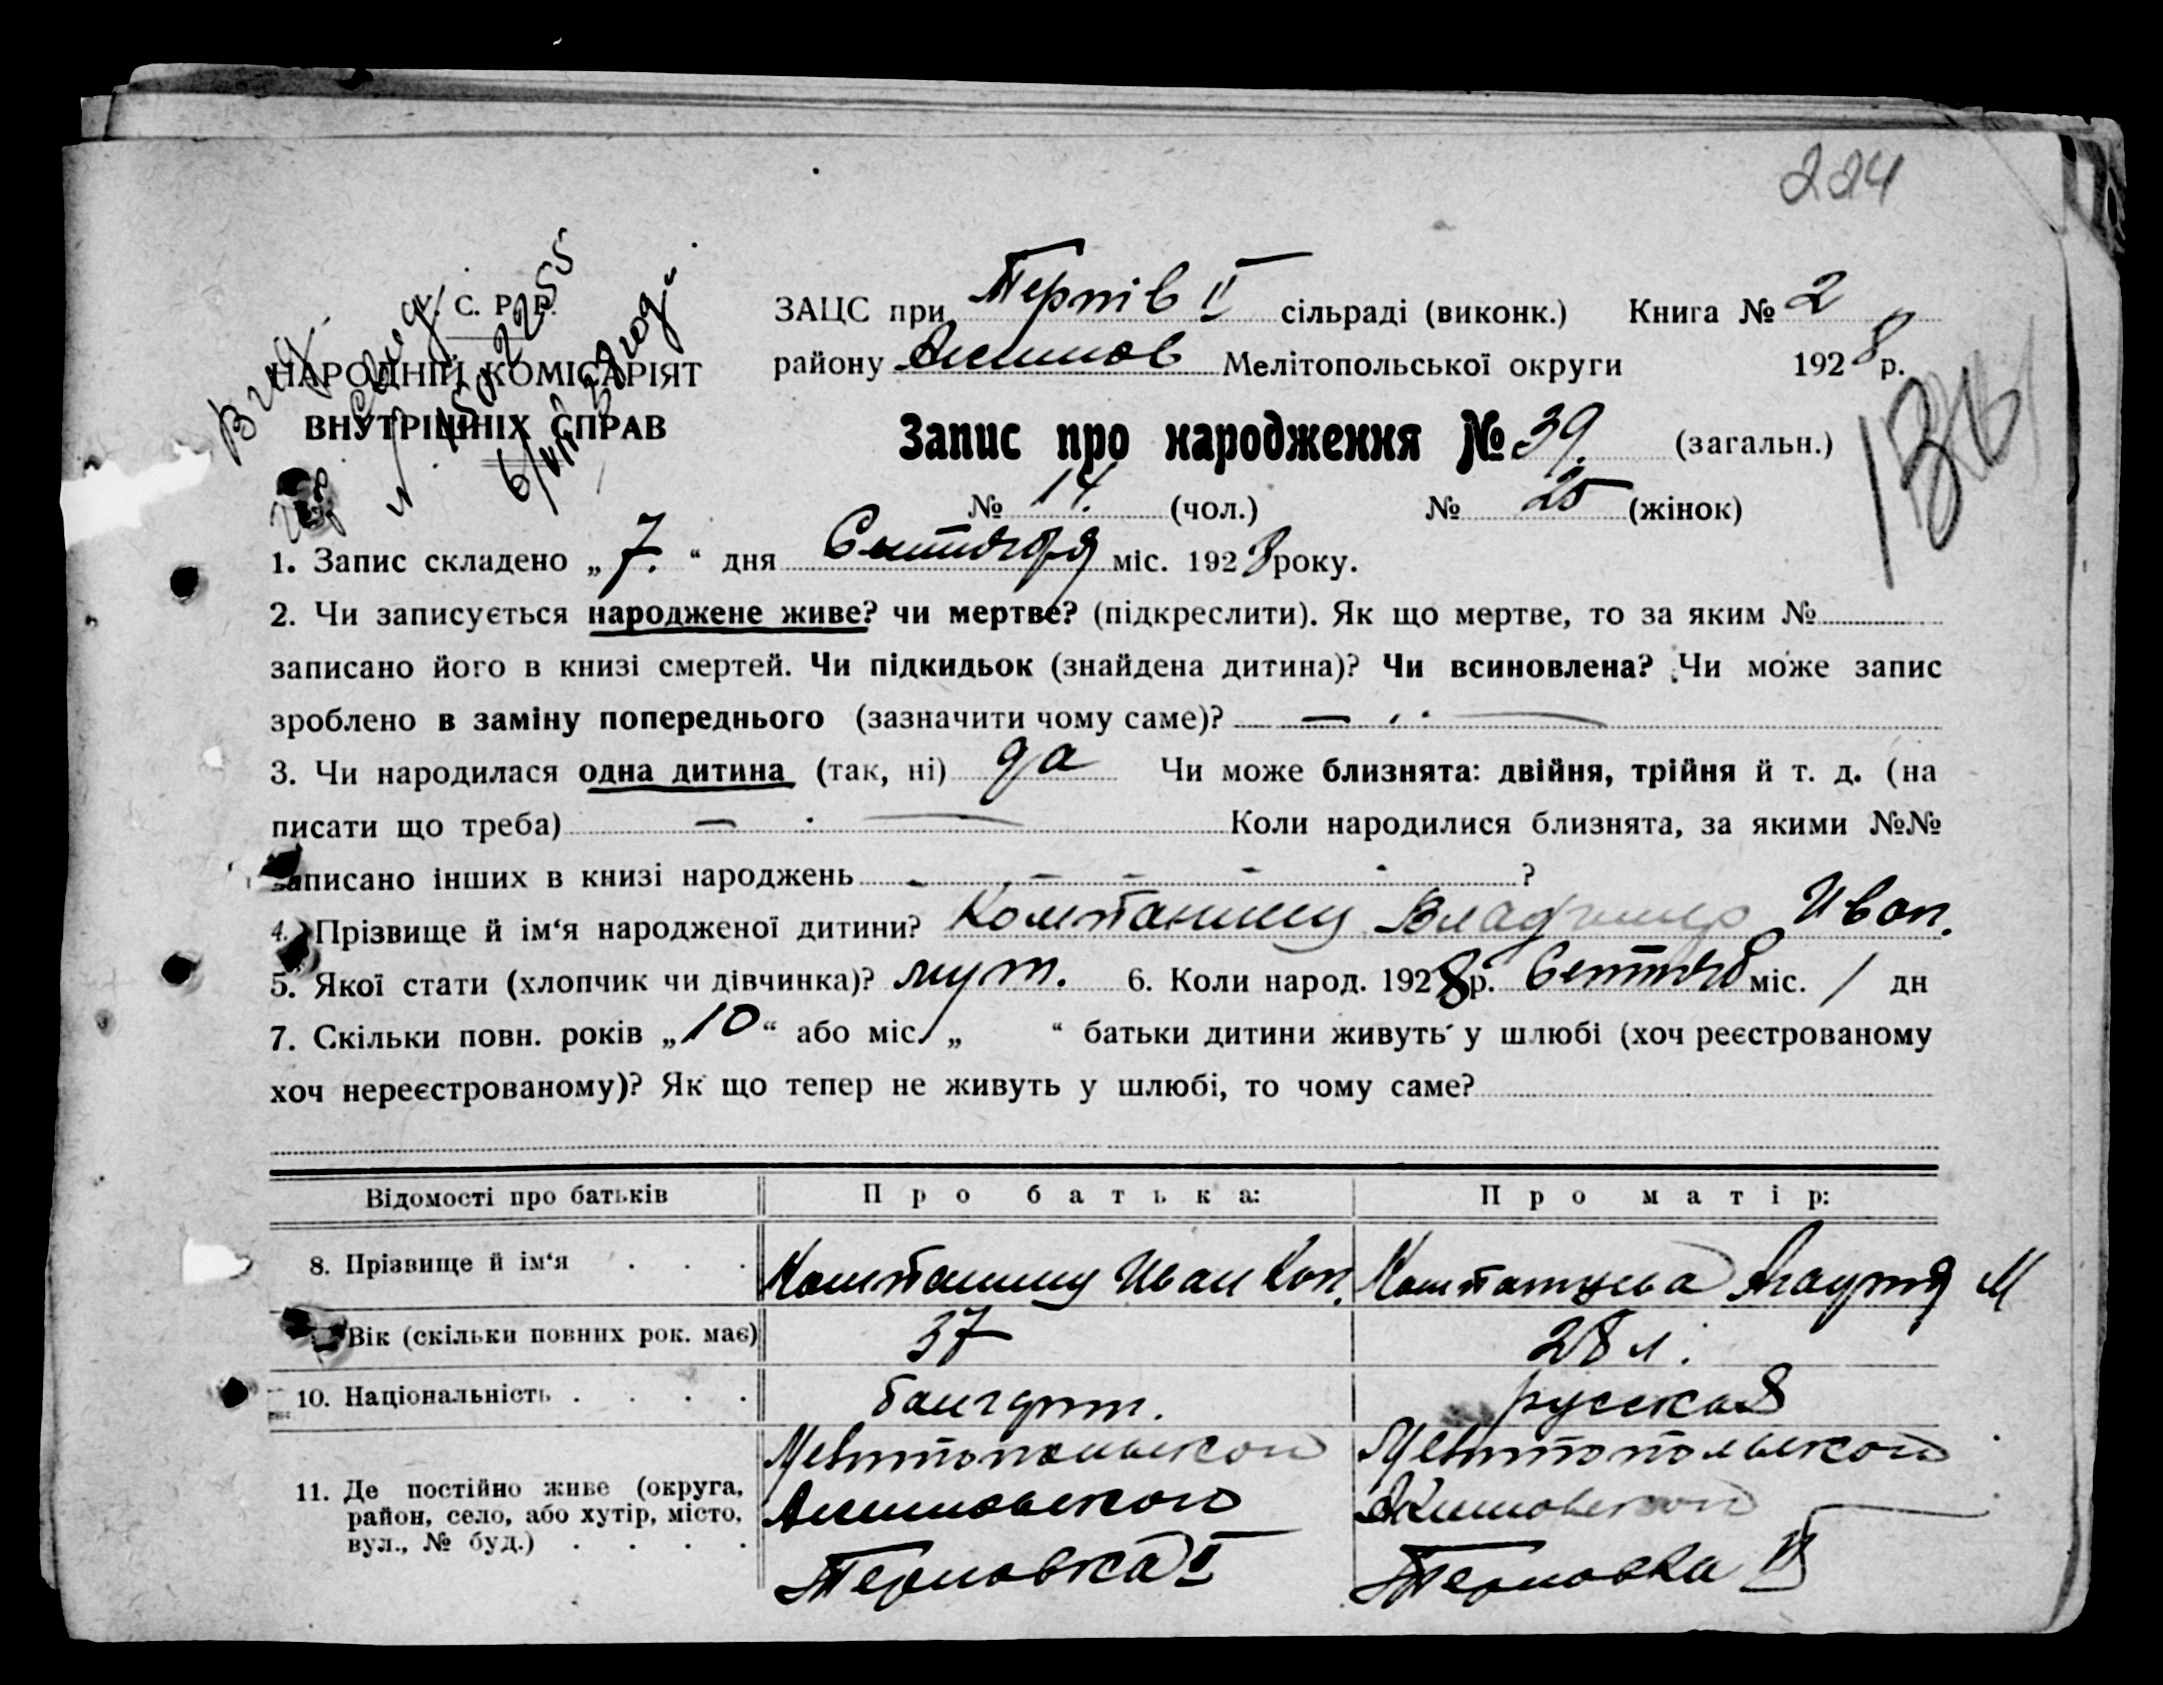 224
У. С. Р. Р.
НАРОДНІЙ КОМІСАРІЯТ
ВНУТРІШНІХ СПРАВ
ЗАЦС при Терпів II сільраді (виконк.) Книга № 2
району Акимов Мелітопольської округи 1928 р.
Запис про народження № 39. (загальн.)
№ 14. (чол.) № 25 (жінок)
1. Запис складено „ 7. “ дня Сентября міс. 1928 року.
2. Чи записується народжене живе? чи мертве? (підкреслити). Як що мертве, то за яким №
записано його в книзі смертей. Чи підкидьок (знайдена дитина)? Чи всиновлена? Чи може запис
зроблено в заміну попереднього (зазначити чому саме)? —
3. Чи народилася одна дитина (так, ні) да Чи може близнята: двійня, трійня й т. д. (на
писати що треба) — Коли народилися близнята, за якими №№
записано інших в книзі народжень ?
4. Прізвище й ім‘я народженої дитини? Владимир Иван.
5. Якої стати (хлопчик чи дівчинка)? муж. 6. Коли народ. 1928 р. Сентяб міс. 1 дн
7. Скільки повн. років „ 10 “ або міс. „ “ батьки дитини живуть у шлюбі (хоч реєстрованому
хоч нереєстрованому)? Як що тепер не живуть у шлюбі, то чому саме?
Відомості про батьків Про батька: Про матір:
8. Прізвище й ім‘я . . . Иван Кон.
Вік (скільки повних рок. має) 37 28 л.
10. Національність . . . . русская
11. Де постійно живе (округа, район, село, або хутір, місто, вул., № буд.) . . . .
Мелитопольской Мелитопольской
Акимовского Акимовского
Терновка II Терновка II